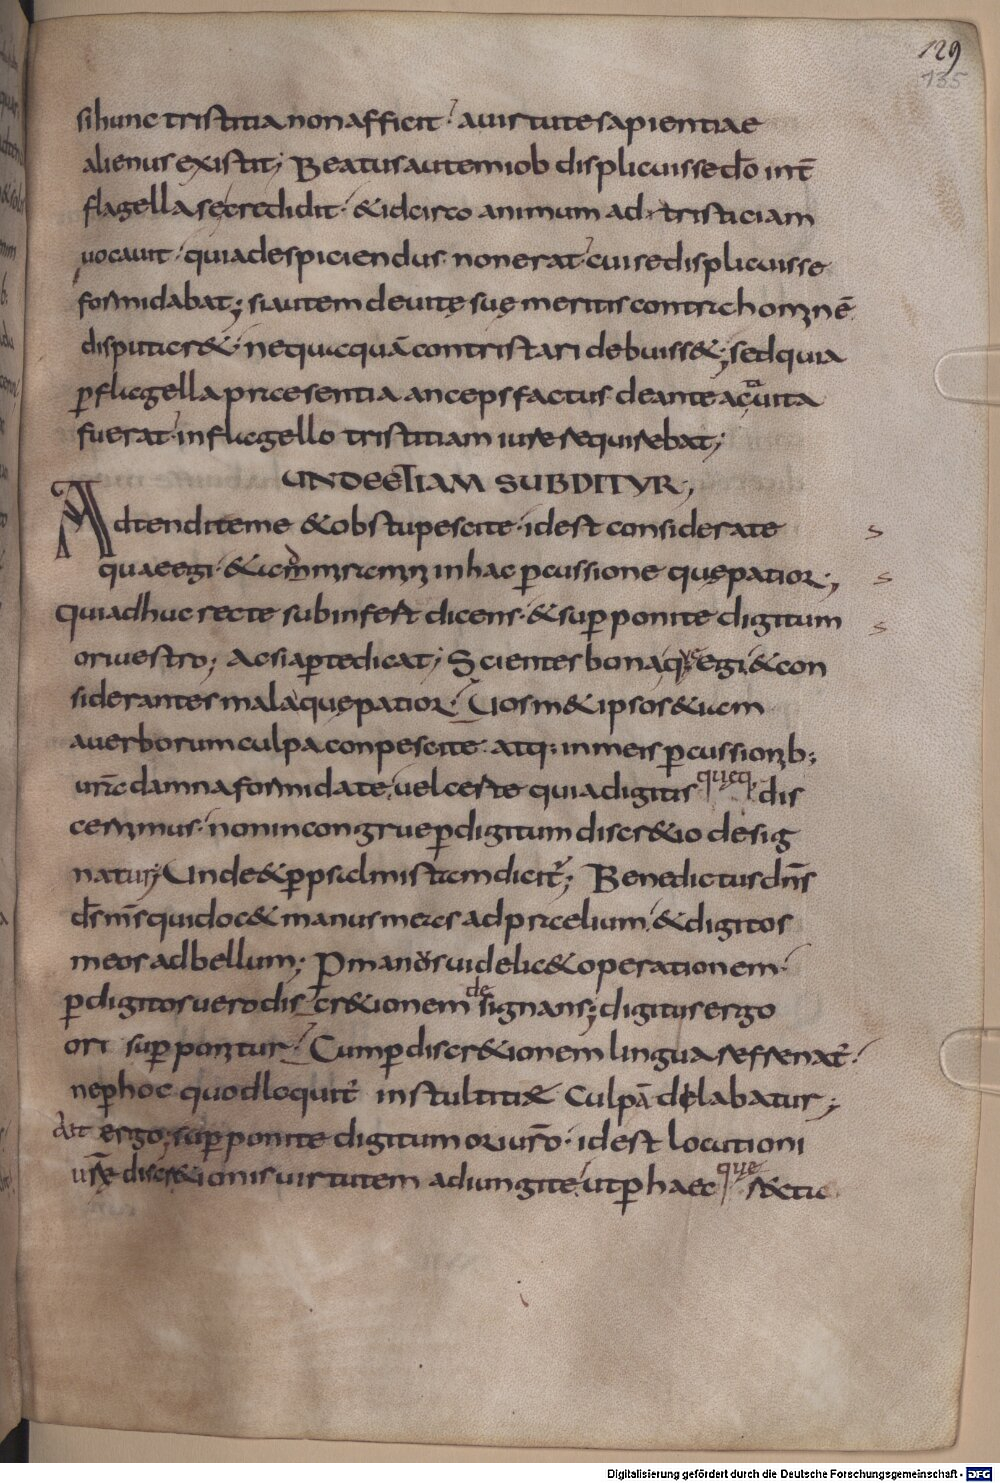 129
135
si hunc tristitia non afficit · a uirtute sapientiae
alienus existit; Beatus autem iob displicuisse do̅ int̅
flagella se credidit · & idcirco animum ad tristiciam
uocauit · quia despiciendus non erat cui se displicuisse
formidabat; si autem de uitę suę meritis contrich omnē
disputar&· nequicquā contristari debuiss&; sed quia
p̱ flagella praesentia anceps factus de ante acta uita
fuerat· in flagello tristitiam iure sequirebat;
UNDE ETIAM SUBDITUR;
Adtendite me & obstupescite · id est considerate
quae egi · & in hac p̱cussione quę patior;
Qui adhuc recte subinfert dicens · & sup̱ponite digitum
ori uestro; Ac si ap̱te dicat; Scientes bona quę egi, & con
siderantes mala quę patior · Uosm& ipsos & iam
a uerborum culpa conpescite · atq; in meis p̱cussionib;
ur̅a damna formidate, uel certe quia digitis queq, dis
cernimus · non incongrue p̱ digitum discr&io desig
natur; Unde & p̱ psalmistam dicit̅; Benedictus dn̅s
ds̅ ms̅ qui doc& manus meas ad praelium, & digitos
meos ad bellum; P manus uidelic& operationem ·
p̱ digitos uero discr&ionem designans; digitus ergo
ori sup̱ponitur · Cum p̱ discr&ionem lingua refrenat̅ ·
ne p̱ hoc quod loquit̅ in stultitiae culpā delabatur;
ait ergo; sup̱ponite digitum ori ur̅o · id est locutioni
ur̅ę discr&ionis uirtutem adiungite, ut p̱ haec que
s
s
s
Digitalisierung gefördert durch die Deutsche Forschungsgemeinschaft - DFG